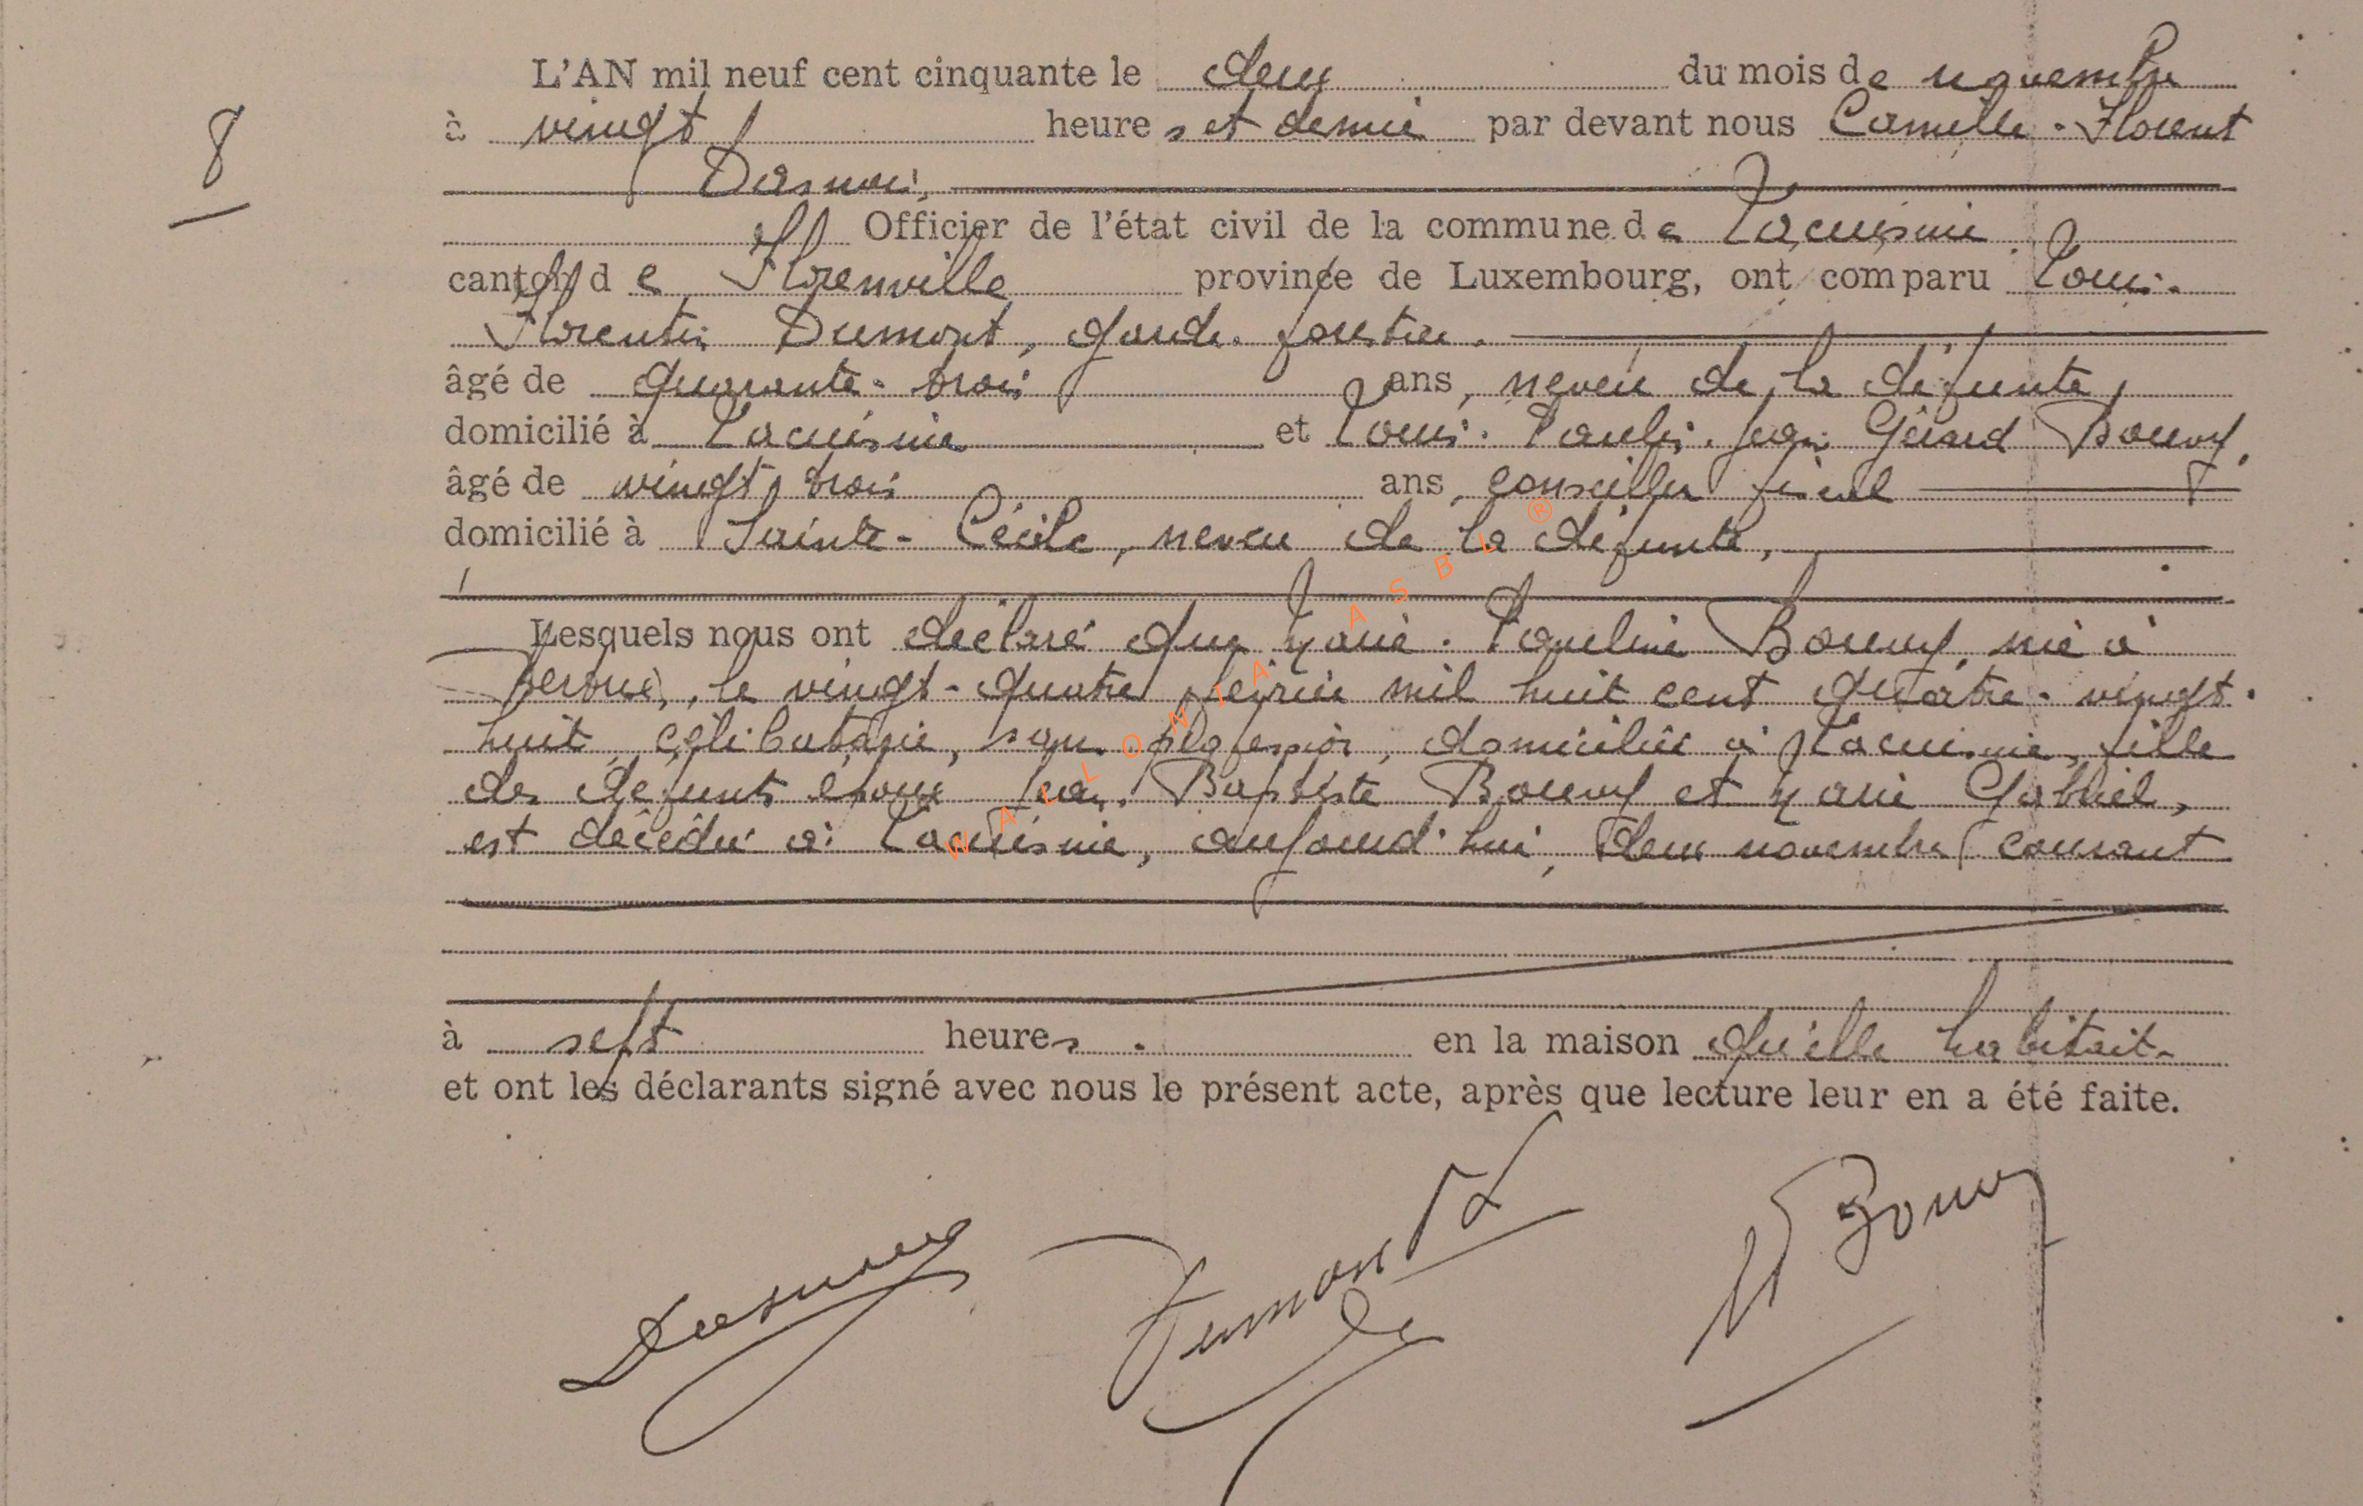 L'AN mil neuf cent cinquante le deux du mois de novembre
8
à vingt heures et demie par devant nous Camille-Florent
Dasnoi,
Officier de l'état civil de la commune de Lacuisine
canton de Florenville province de Luxembourg, ont comparu Louis-
Florentin Dumont, garde-forestier.
âgé de quarante-trois ans, neveu de la défunte,
domicilié à Lacuisine et Louis-Paulin-Jean Gérard Bouvy,
âgé de vingt trois ans, conseiller fiscal
domicilié à Sainte-Cécile, neveu de la défunte,
Lesquels nous ont déclaré que Marie-Pauline Bouvy, née à
le vingt-quatre février mil huit cent quatre-vingt-
huit, célibataire, sans profession, domiciliée à Lacuisine, fille
des défunts époux Jean-Baptiste Bouvy et Marie Gabriel,
est décédée à Lacuisine, aujourd'hui, deux novembre courant
à sept heures. en la maison qu'elle habitait.
et ont les déclarants signé avec nous le présent acte, après que lecture leur en a été faite.
Dumont L
Bouvy
WALLONIA ASBL ®